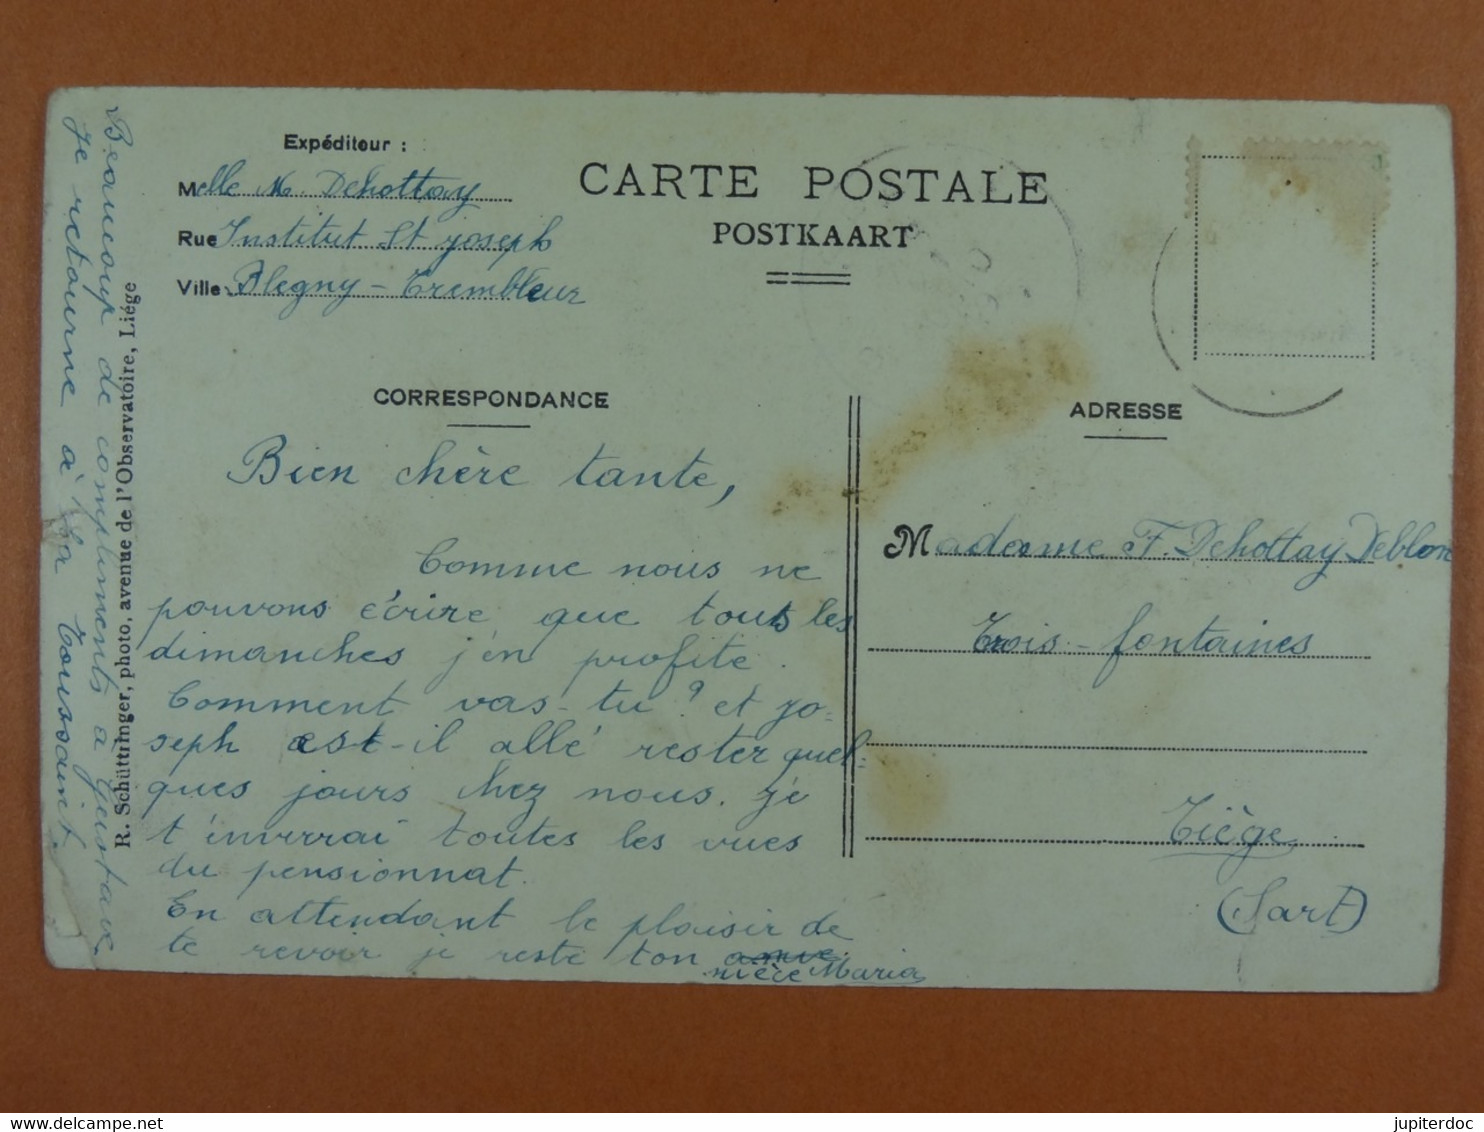 Expéditeur :
Melle M. Dehottay
Rue Institut St joseph
Ville Blegny - Trembleur
CARTE POSTALE
POSTKAART
CORRESPONDANCE
ADRESSE
Bien chère tante,
Comme nous ne
pouvons écrire que tous les
dimanches j'en profite.
Comment vas-tu? et jo-
seph est-il allé rester quel-
ques jours chez nous. je
t'inverrai toutes les vues
du pensionnat.
En attendant le plaisir de
te revoir je reste ton
nièce Maria
Madame F. Dehottay Deblon
Trois-fontaines
Tiège
(Sart)
Beaucoup de compliments a Gustave
Je retourne à la Toussaint.
R. Schüttringer, photo, avenue de l'Observatoire, Liége
jupiterdoc
delcampe.net